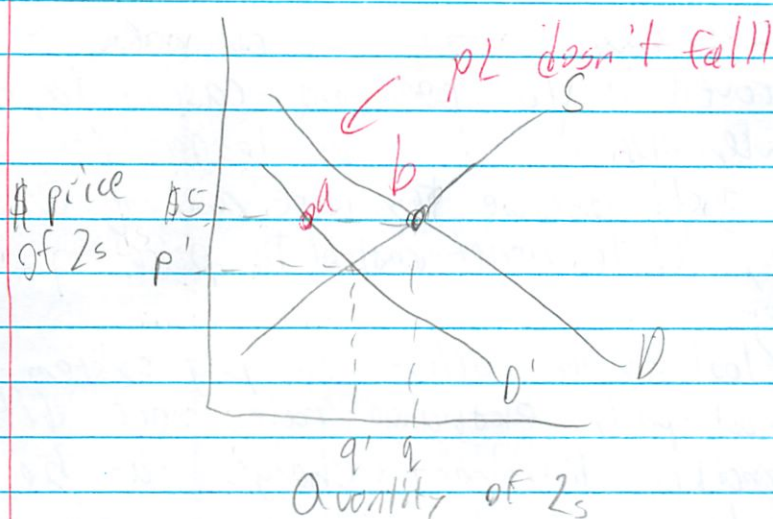 PL dosn't fall
S
b
a
$ price
of 2s
$5
p'
D
D'
q' q
Quantity of 2s